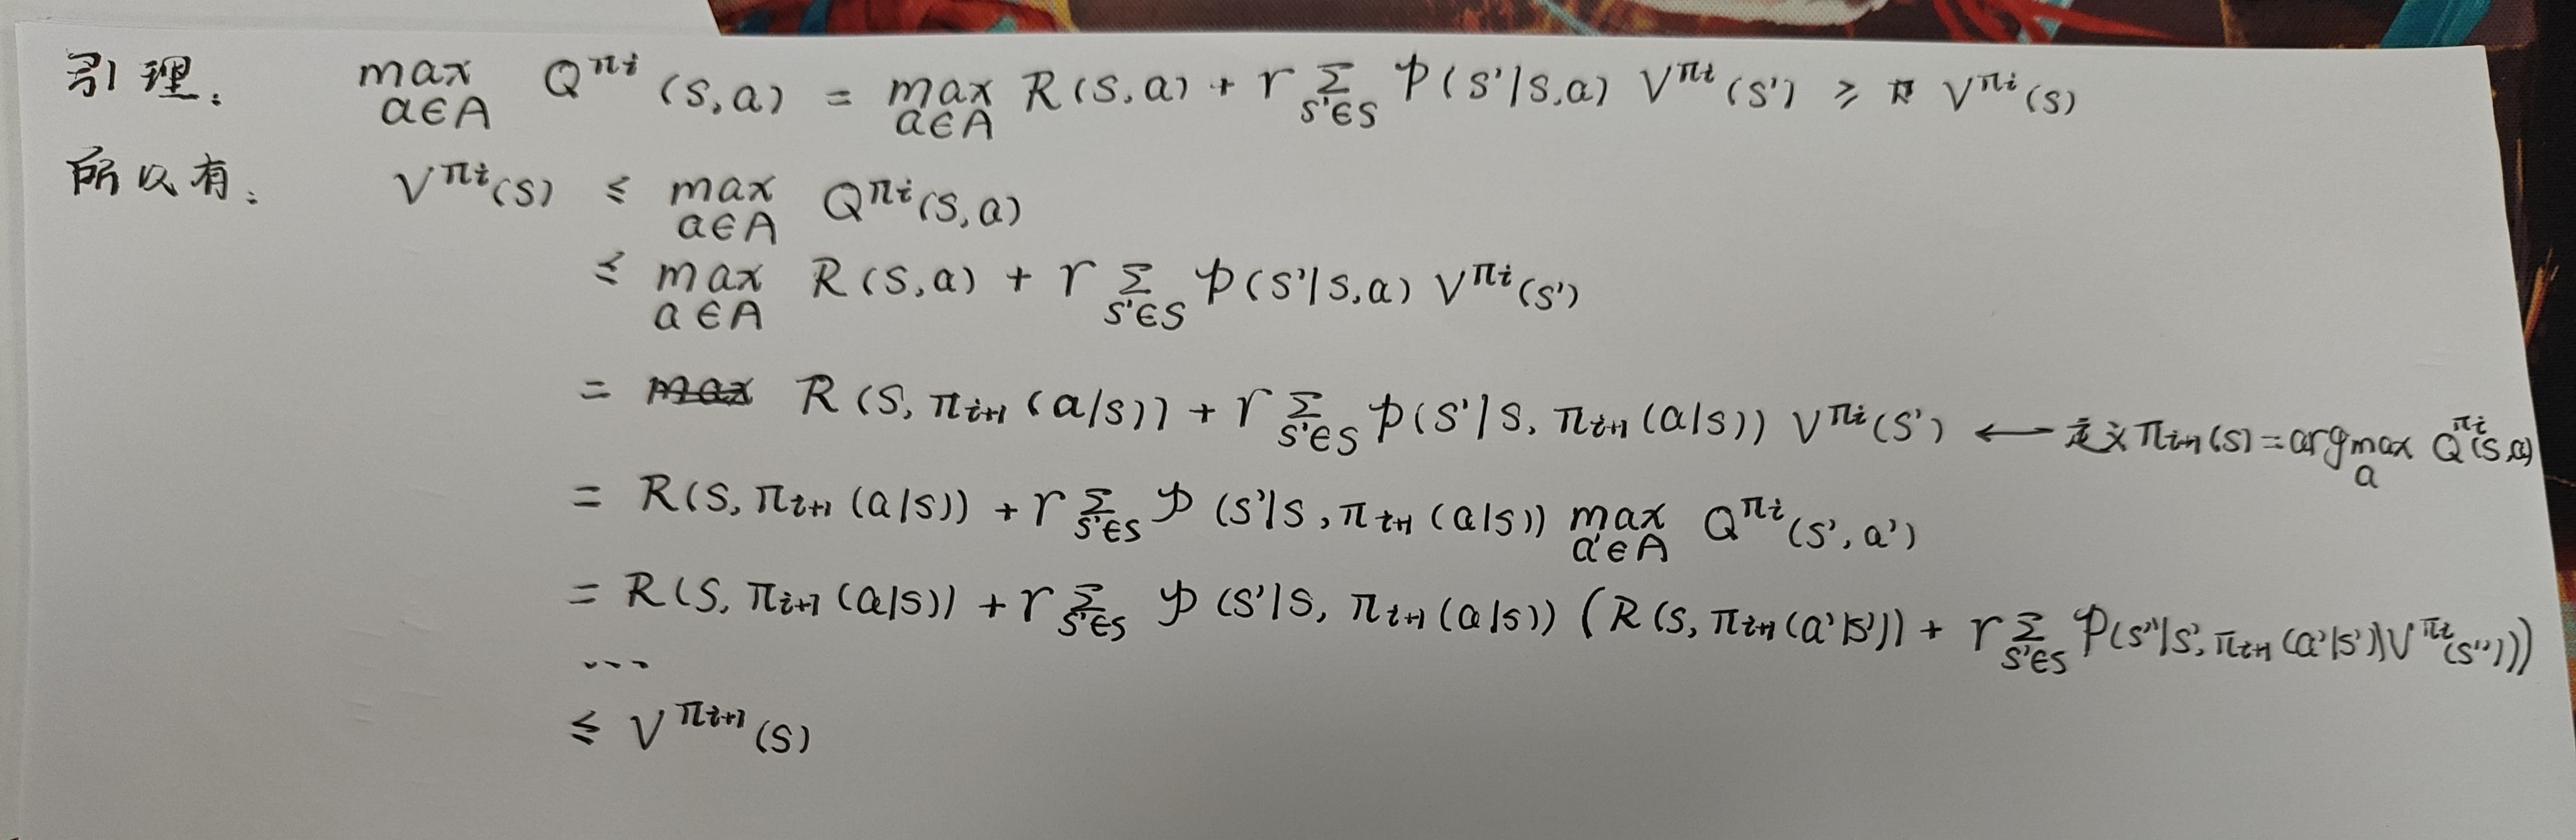 引理： max_{a∈A} Q^{πi}(s,a) = max_{a∈A} R(s,a) + r Σ_{s'∈S} p(s'|s,a) V^{πi}(s') ≥ V^{πi}(s)
所以有： V^{πi}(s) ≤ max_{a∈A} Q^{πi}(s,a)
≤ max_{a∈A} R(s,a) + r Σ_{s'∈S} p(s'|s,a) V^{πi}(s')
= R(s, π_{i+1}(a|s)) + r Σ_{s'∈S} p(s'|s, π_{i+1}(a|s)) V^{πi}(s') ← 定义 π_{i+1}(s) = argmax_a Q^{πi}(s,a)
= R(s, π_{i+1}(a|s)) + r Σ_{s'∈S} p(s'|s, π_{i+1}(a|s)) max_{a'∈A} Q^{πi}(s',a')
= R(s, π_{i+1}(a|s)) + r Σ_{s'∈S} p(s'|s, π_{i+1}(a|s)) (R(s, π_{i+1}(a'|s')) + r Σ_{s'∈S} p(s''|s', π_{i+1}(a'|s')) V^{πi}(s'')))
...
≤ V^{πi+1}(s)